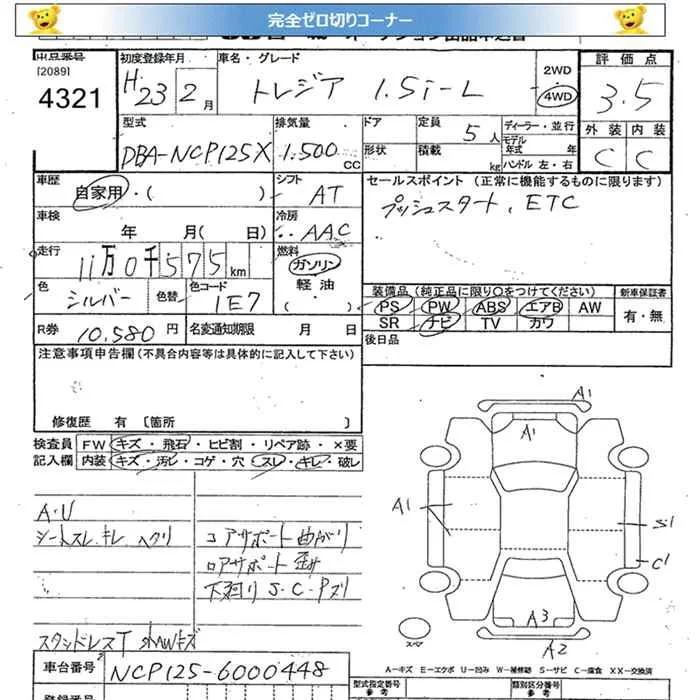 完全ゼロ切りコーナー
出品番号
[2089]
4321
初度登録年月
H 23 2月
車名・グレード
トレジア 1.5i-L
2WD
4WD
評価点
3.5
外装 内装
C C
型式
DBA-NCP125X
排気量
1.500 CC
ドア
形状
定員 5人
積載 kg
ディーラー・並行
モデル年式 年
ハンドル 左・右
車歴
自家用・( )
シフト
AT
セールスポイント(正常に機能するものに限ります)
プッシュスタート、ETC
車検
年 月(日)
冷房
AAC
走行
11万0千575km
燃料
ガソリン
軽油
( )
色
シルバー
色替
色コード
1E7
装備品(純正品に限り○をつけてください)
PS PW ABS エアB AW
SR ナビ TV カワ
新車保証書
有・無
R券 10,580円
名変通知期限 月 日
後日品
注意事項申告欄(不具合内容等は具体的に記入して下さい)
修復歴 有〔箇所 〕
検査員
記入欄
FW キズ・飛石・ヒビ割・リペア跡・×要
内装 キズ・汚レ・コゲ・穴 スレ・キレ・破レ
A・U
シートスレ・キレ ヘタリ
コアサポート曲がり
ロアサポート歪み
下廻り S・C・Pズリ
スタッドレスT
A1
A1
A1
S1
C1
A3
A2
スペア
A-キズ E-エクボ U-凹み W-補修跡 S-サビ C-腐食 XX-交換済
車台番号 NCP125-6000448
型式指定番号
参考
類別区分番号
参考
登録番号